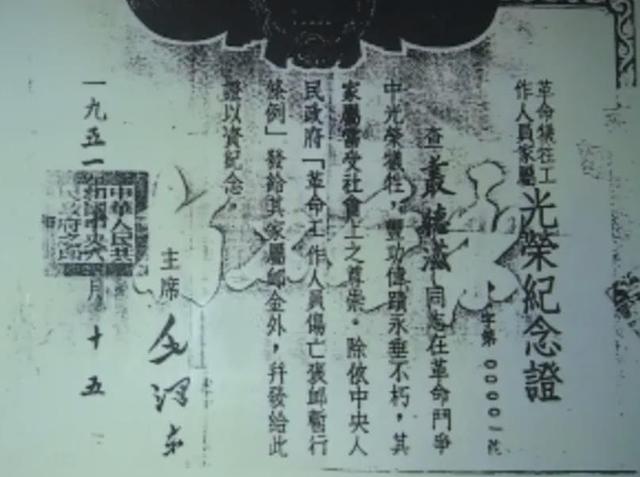 革命犧牲工
作人員家屬
光榮紀念證
字第00001號
查叢德滋同志在革命鬥爭
中光榮犧牲,豐功偉蹟永垂不朽,其
家屬當受社會上之尊崇。除依中央人
民政府「革命工作人員傷亡褒卹暫行
條例」發給其家屬卹金外,幷發給此
證以資紀念。
主席 毛澤東
一九五一 月十五
中華人民共
和國中央人
民政府之印